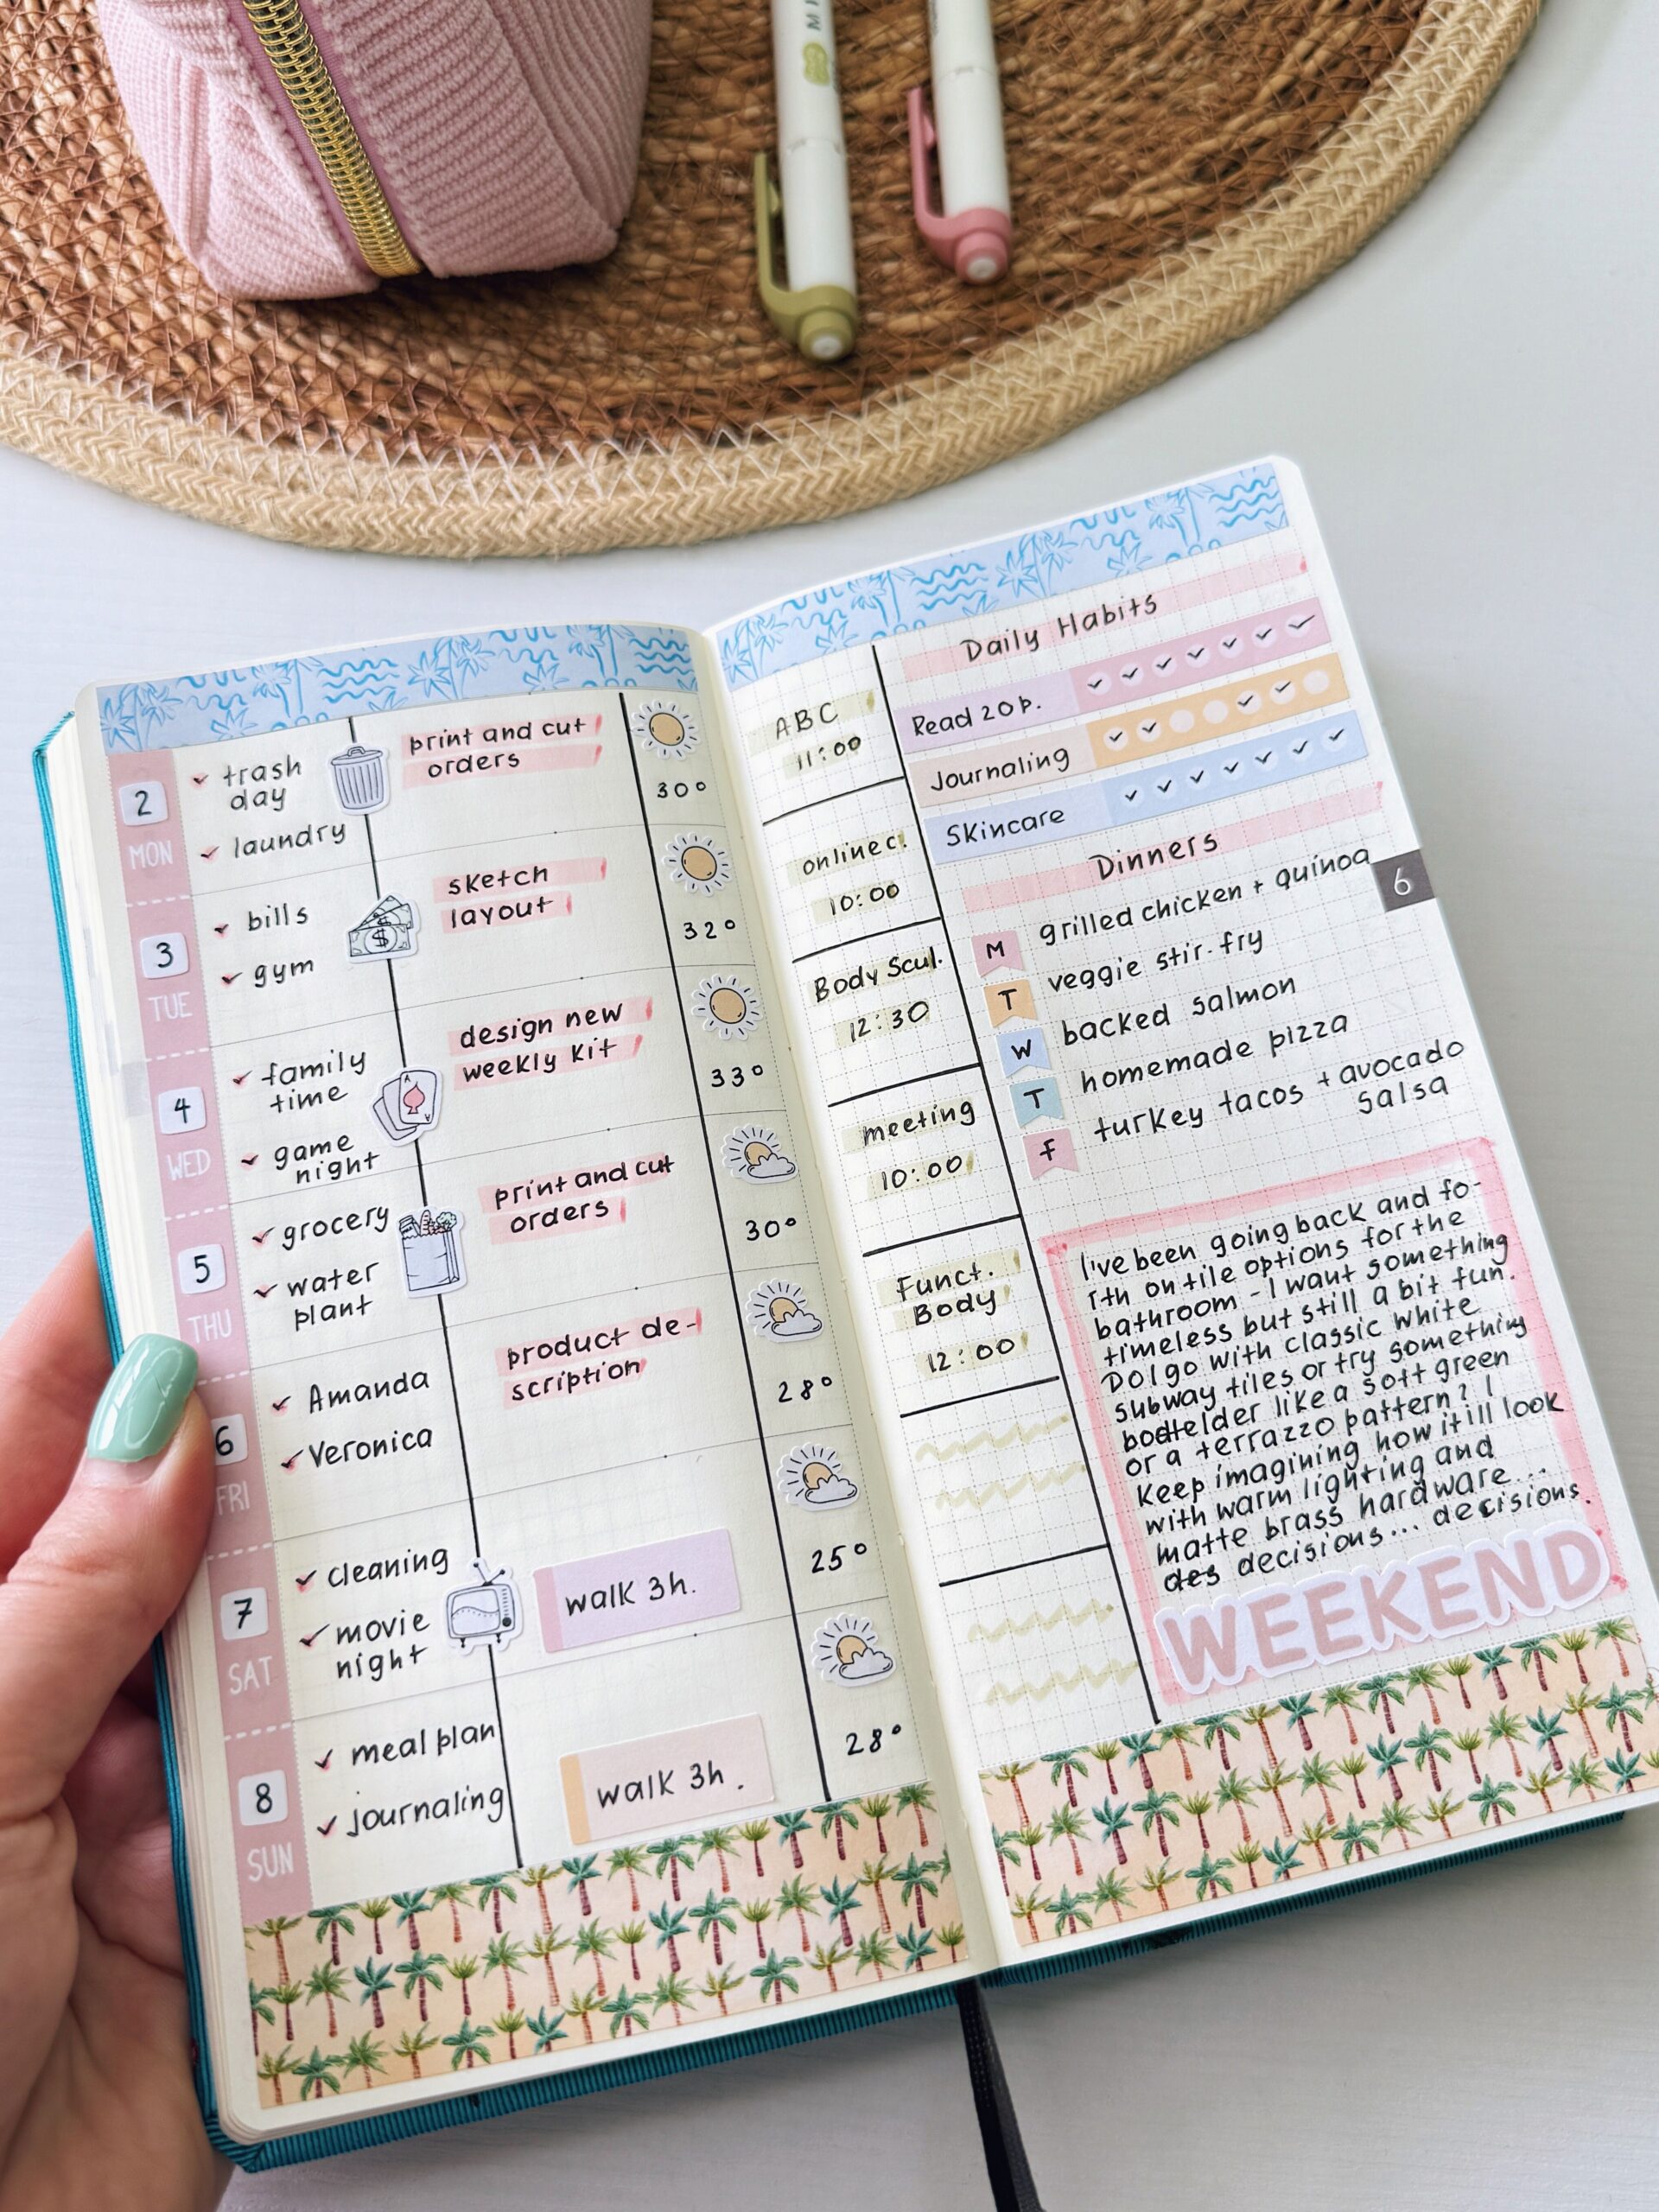 MI
2
MON
trash
day
laundry
print and cut
orders
30°
3
TUE
bills
gym
$
sketch
layout
32°
4
WED
family
time
game
night
A
A
design new
weekly kit
33°
5
THU
grocery
water
plant
print and cut
orders
30°
6
FRI
Amanda
Veronica
product de-
scription
28°
7
SAT
cleaning
movie
night
walk 3h.
25°
8
SUN
meal plan
journaling
walk 3h.
28°
ABC
11:00
online c.
10:00
Body Scul.
12:30
meeting
10:00
Funct.
Body
12:00
Daily Habits
Read 20 p.
Journaling
Skincare
Dinners
6
M grilled chicken + quinoa
T veggie stir-fry
W backed salmon
T homemade pizza
F turkey tacos + avocado
salsa
I've been going back and fo-
rth on tile options for the
bathroom - I want something
timeless but still a bit fun.
Do I go with classic white
subway tiles or try something
bodlelder like a soft green
or a terrazzo pattern? I
keep imagining how it ill look
with warm lighting and
matte brass hardware...
des decisions... decisions.
WEEKEND